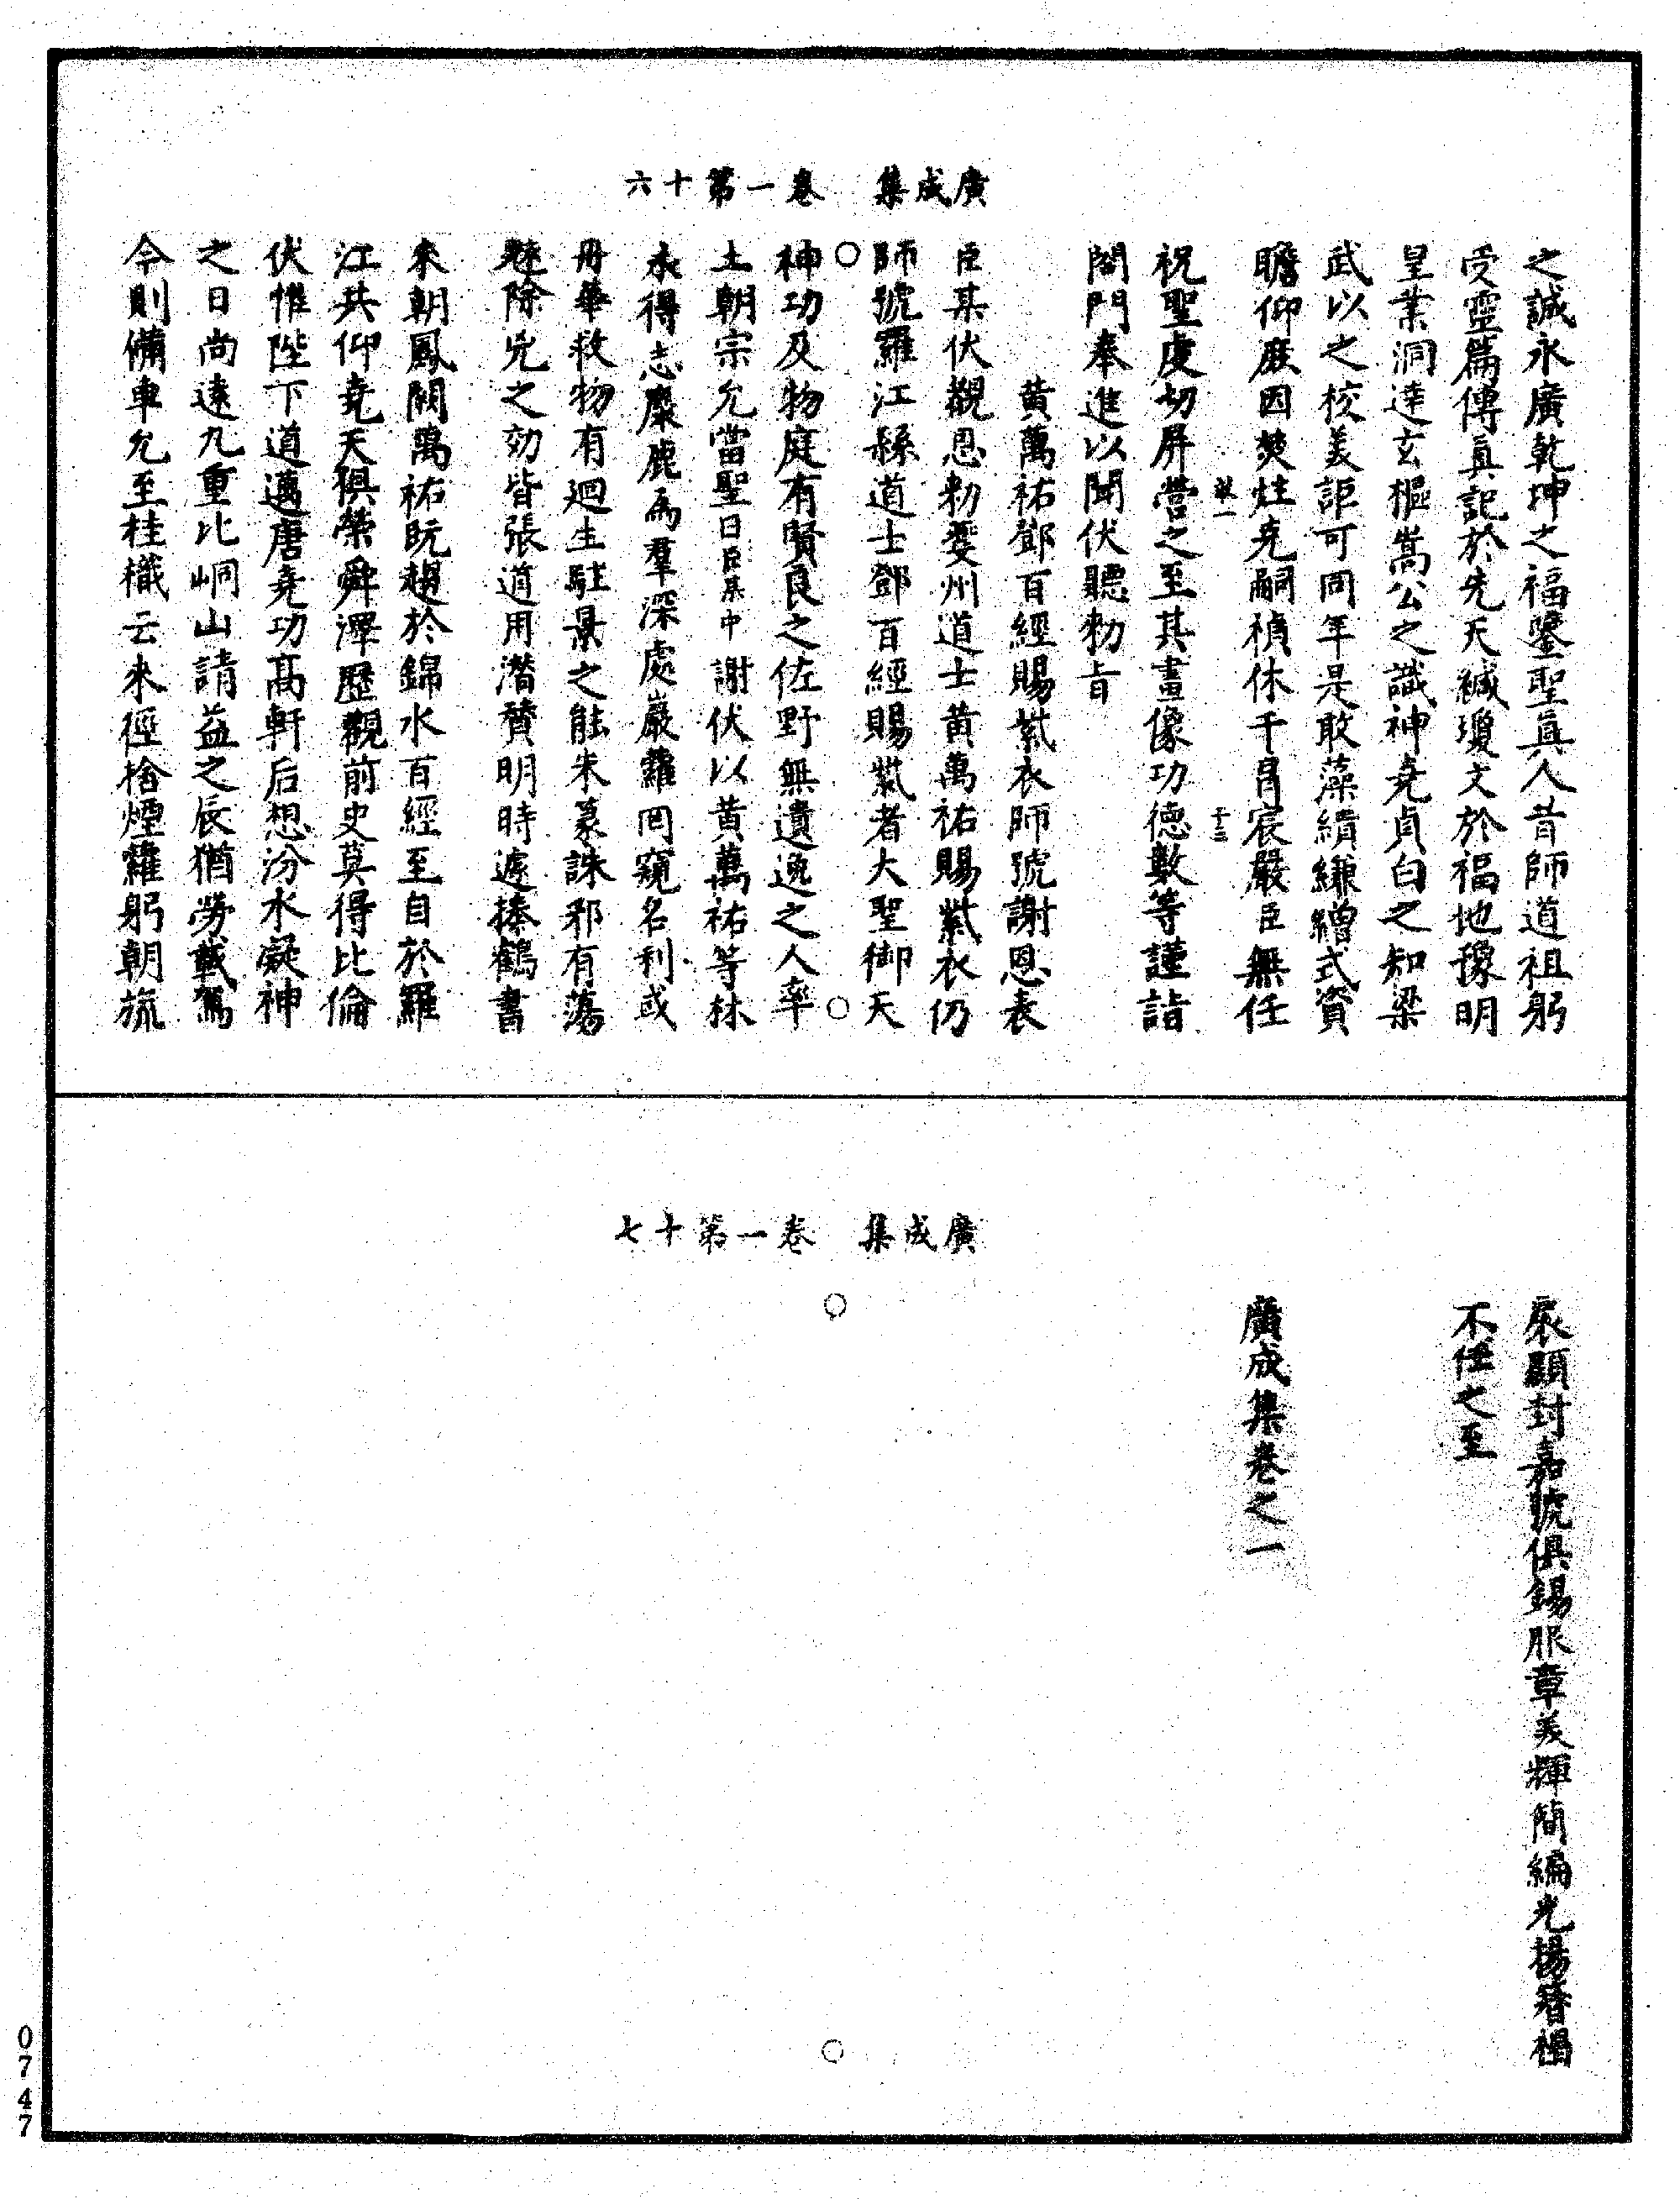 廣成集　卷一第十六
之誠永廣乾坤之福鑒聖真人昔師道祖躬
受靈篇傳真記於先天緘瓊文於福地豫明
皇業洞達玄樞嵩公之識神堯貞白之知梁
武以之校美詎可同年是敢藻繢縑繒式資
瞻仰庶因焚炷克嗣禎休干冐宸嚴臣無任
祝聖虔切屏營之至其畫像功德數等謹詣
閤門奉進以聞伏聽勑旨
黃萬祐鄧百經賜紫衣師號謝恩表
臣某伏覩恩勑夔州道士黃萬祐賜紫衣仍
師號羅江縣道士鄧百經賜紫者大聖御天
神功及物庭有賢良之佐野無遺逸之人率
土朝宗允當聖日臣某中謝伏以黃萬祐等林
泉得志麋鹿為羣深處巖蘿罔窺名利或
丹華救物有迴生駐景之能朱篆誅邪有蕩
魅除兇之効皆張道用潛贊明時遽捧鶴書
來朝鳳闕萬祐旣趨於錦水百經至自於羅
江共仰堯天俱榮舜澤歷觀前史莫得比倫
伏惟陛下道邁唐堯功髙軒后想汾水凝神
之日尚遠九重比峒山請益之辰猶勞載駕
今則備車允至桂檝云來徑捨煙蘿躬朝旒
廣成集　卷一第十七
扆顯封嘉號俱錫服章美輝簡編光揚簪褐
不任之至
廣成集卷之一
0747